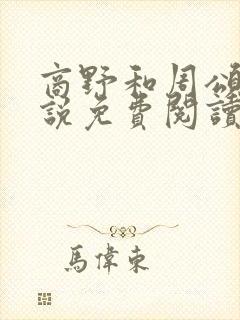 高野和周頌
說免費閱讀
馬偉東